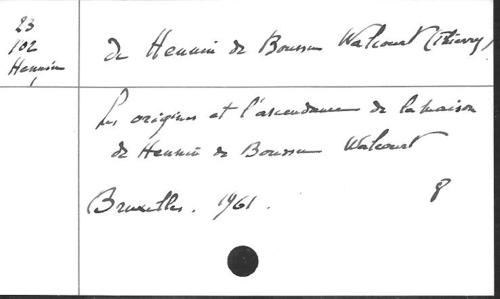 23
102
Hennin
de Hennin de Boussu Walcourt (Thierry)
Les origines et l'ascendance de la maison
de Hennin de Boussu Walcourt
Bruxelles. 1961. 8